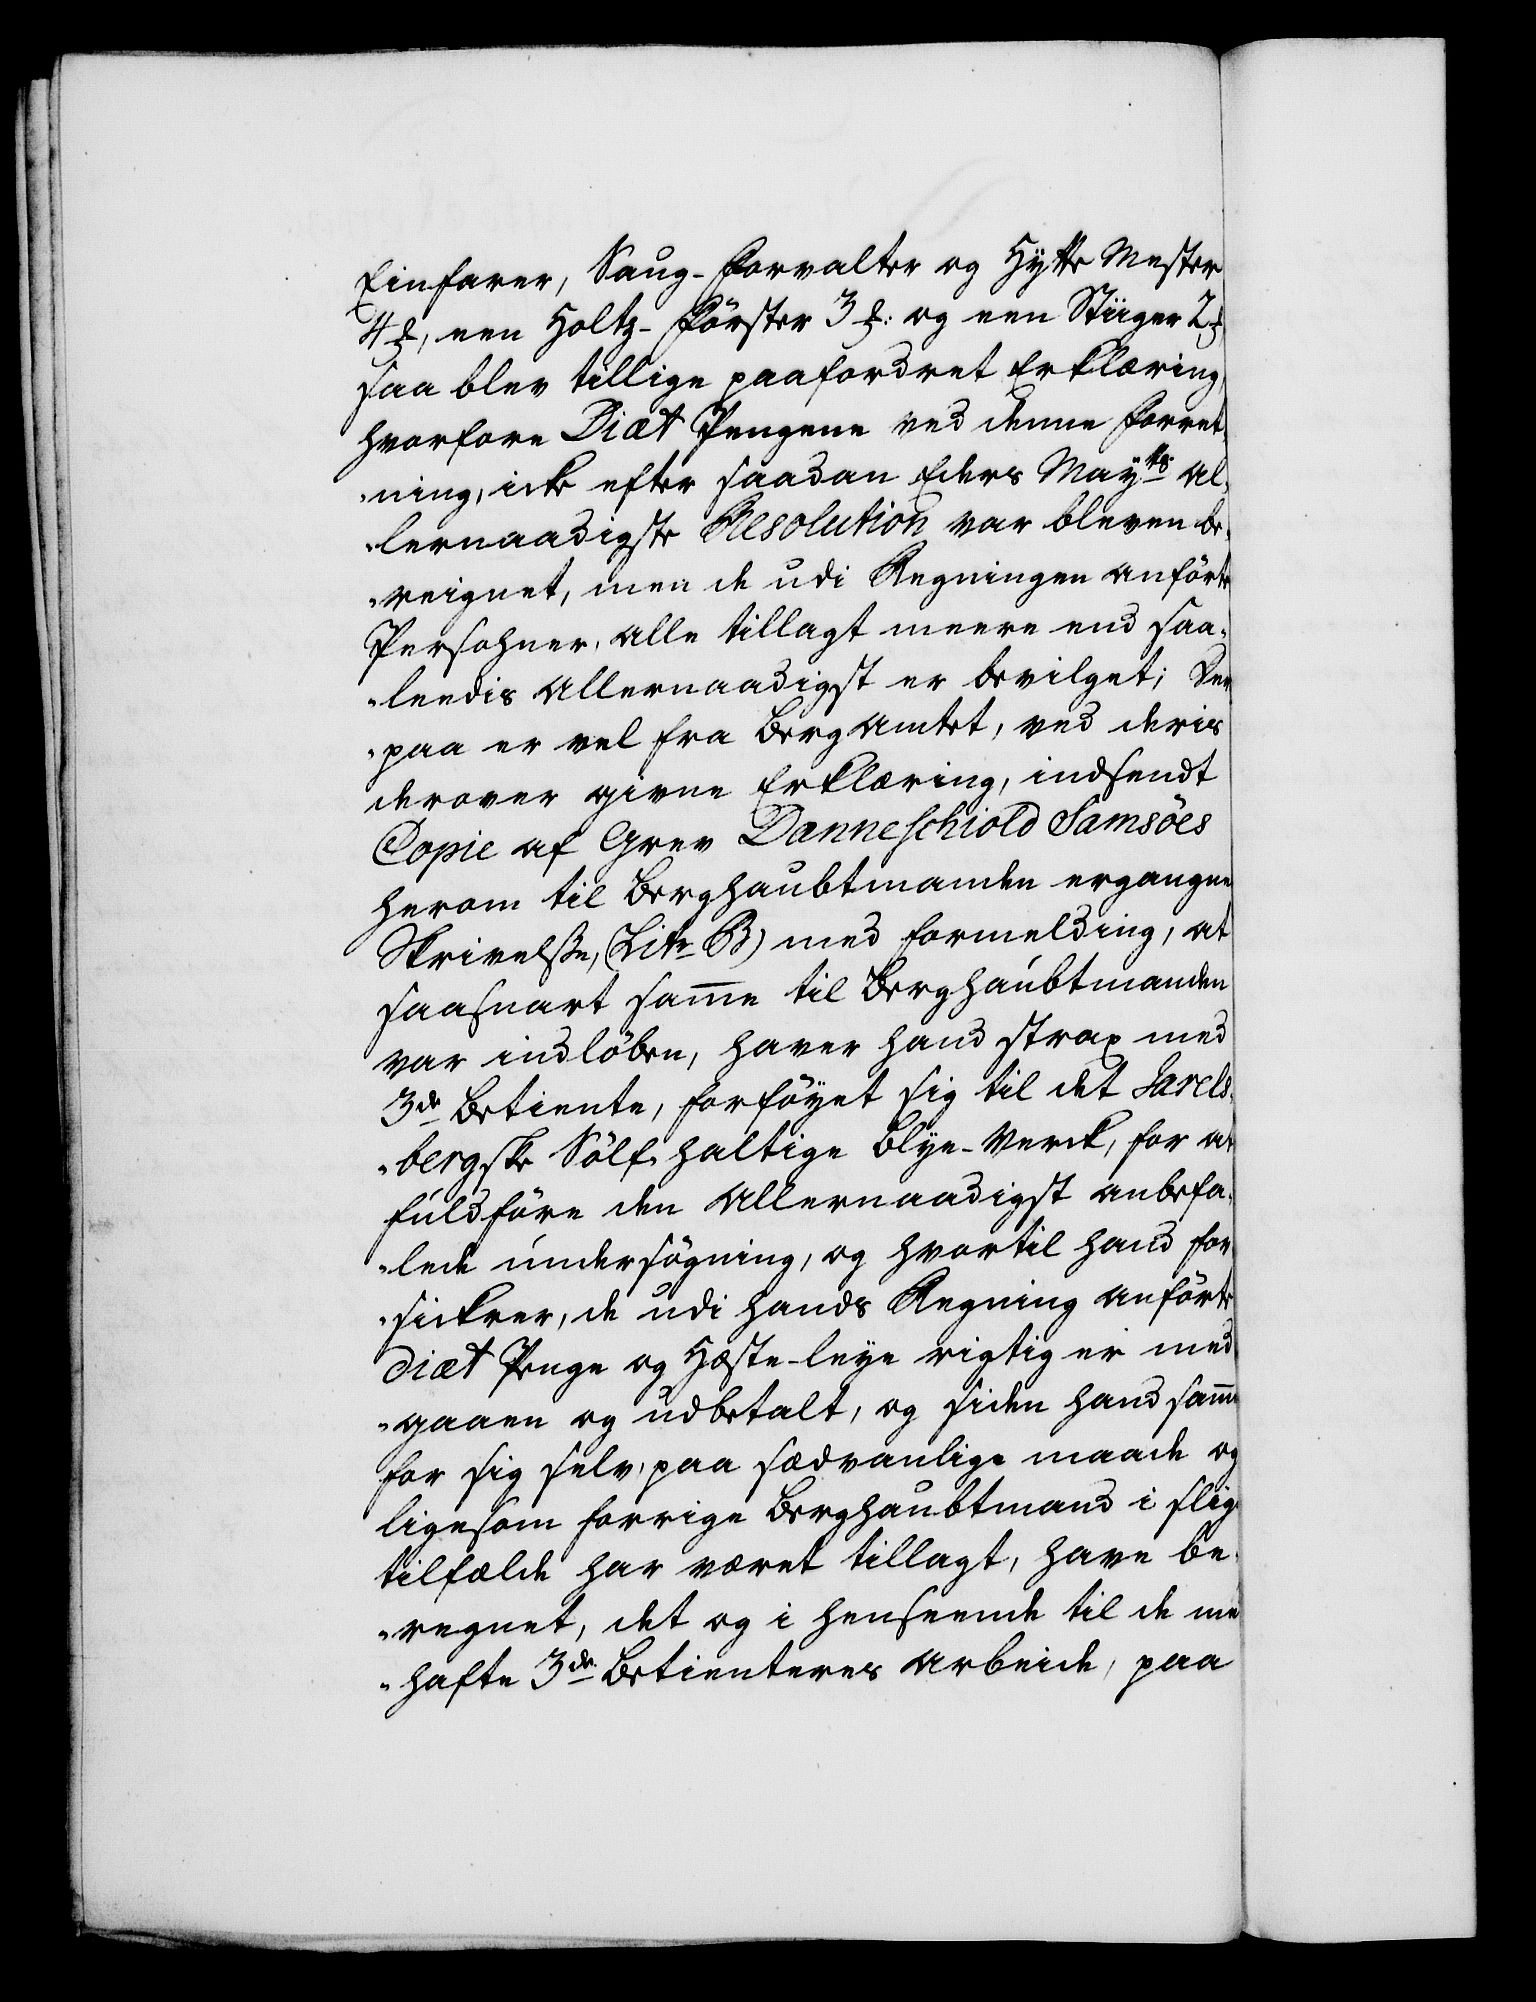 Einfarer, Saug-Forvalter og Hytte Mester
4 ƒ, een Holtz-Förster 3 ƒ: og een Stiiger 2 ƒ,
saa blev tillige paafordret Erklæring,
hvorfore Diæt Pengene ved denne Forret-
-ning, icke efter saadan Eders Mayts Al-
-lernaadigste Resolution var bleven be-
-reignet, men de udi Regningen anförte
Persohner, alle tillagt meere end saa-
-leedis Allernaadigst er bevilget; Der
-paa er vel fra BergAmtet, ved deris
derover givne Erklæring, indsendt
Copie af Grev Danneschiold Samsöes
herom til Berghaubtmanden ergangne
Skrivelsse, (Litr B) med formelding, at
saasnart samme til Berghaubtmanden
var indlöben, haver hand strax med
3de Betiente, forföyet sig til det Jarels-
-bergske Sölf-haltige Blye-Verck, for at
fuldföre den Allernaadigst anbefa-
-lede undersögning, og hvortil hand for
-sickrer, de udi hands Regning anförte
Diæt Penge og Hæste-leye rigtig er med
-gaaen og udbetalt, og siden hand samme
for sig selv, paa sædvanlige maade og
ligesom forrige Berghaubtmand i slig
tilfælde har været tillagt, have be-
-regnet, det og i henseende til de med
-hafte 3de Betienteres Arbeide, paa